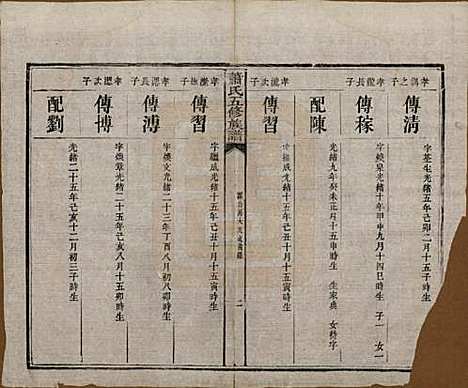 孝鷂之子
傳清
字荃生光緒五年己卯二月十五子時生
孝龍長子
傳稼
字曉泉光緒十年甲申九月十四巳時生 子一 女一
配陳
光緒九年癸未正月十五寅時生 生家典 女特字
孝龍次子
傳習
字繼成光緒十五年己丑十月十五寅時生
蕭氏五修族譜
二
傳習
字繼成光緒十五年己丑十月十五寅時生
孝混長子
傳溥
字煥文光緒二十三年丁酉八月初八卯時生
孝混次子
傳博
字煥章光緒二十五年己亥八月十五卯時生
配劉
光緒二十五年己亥十二月初三子時生